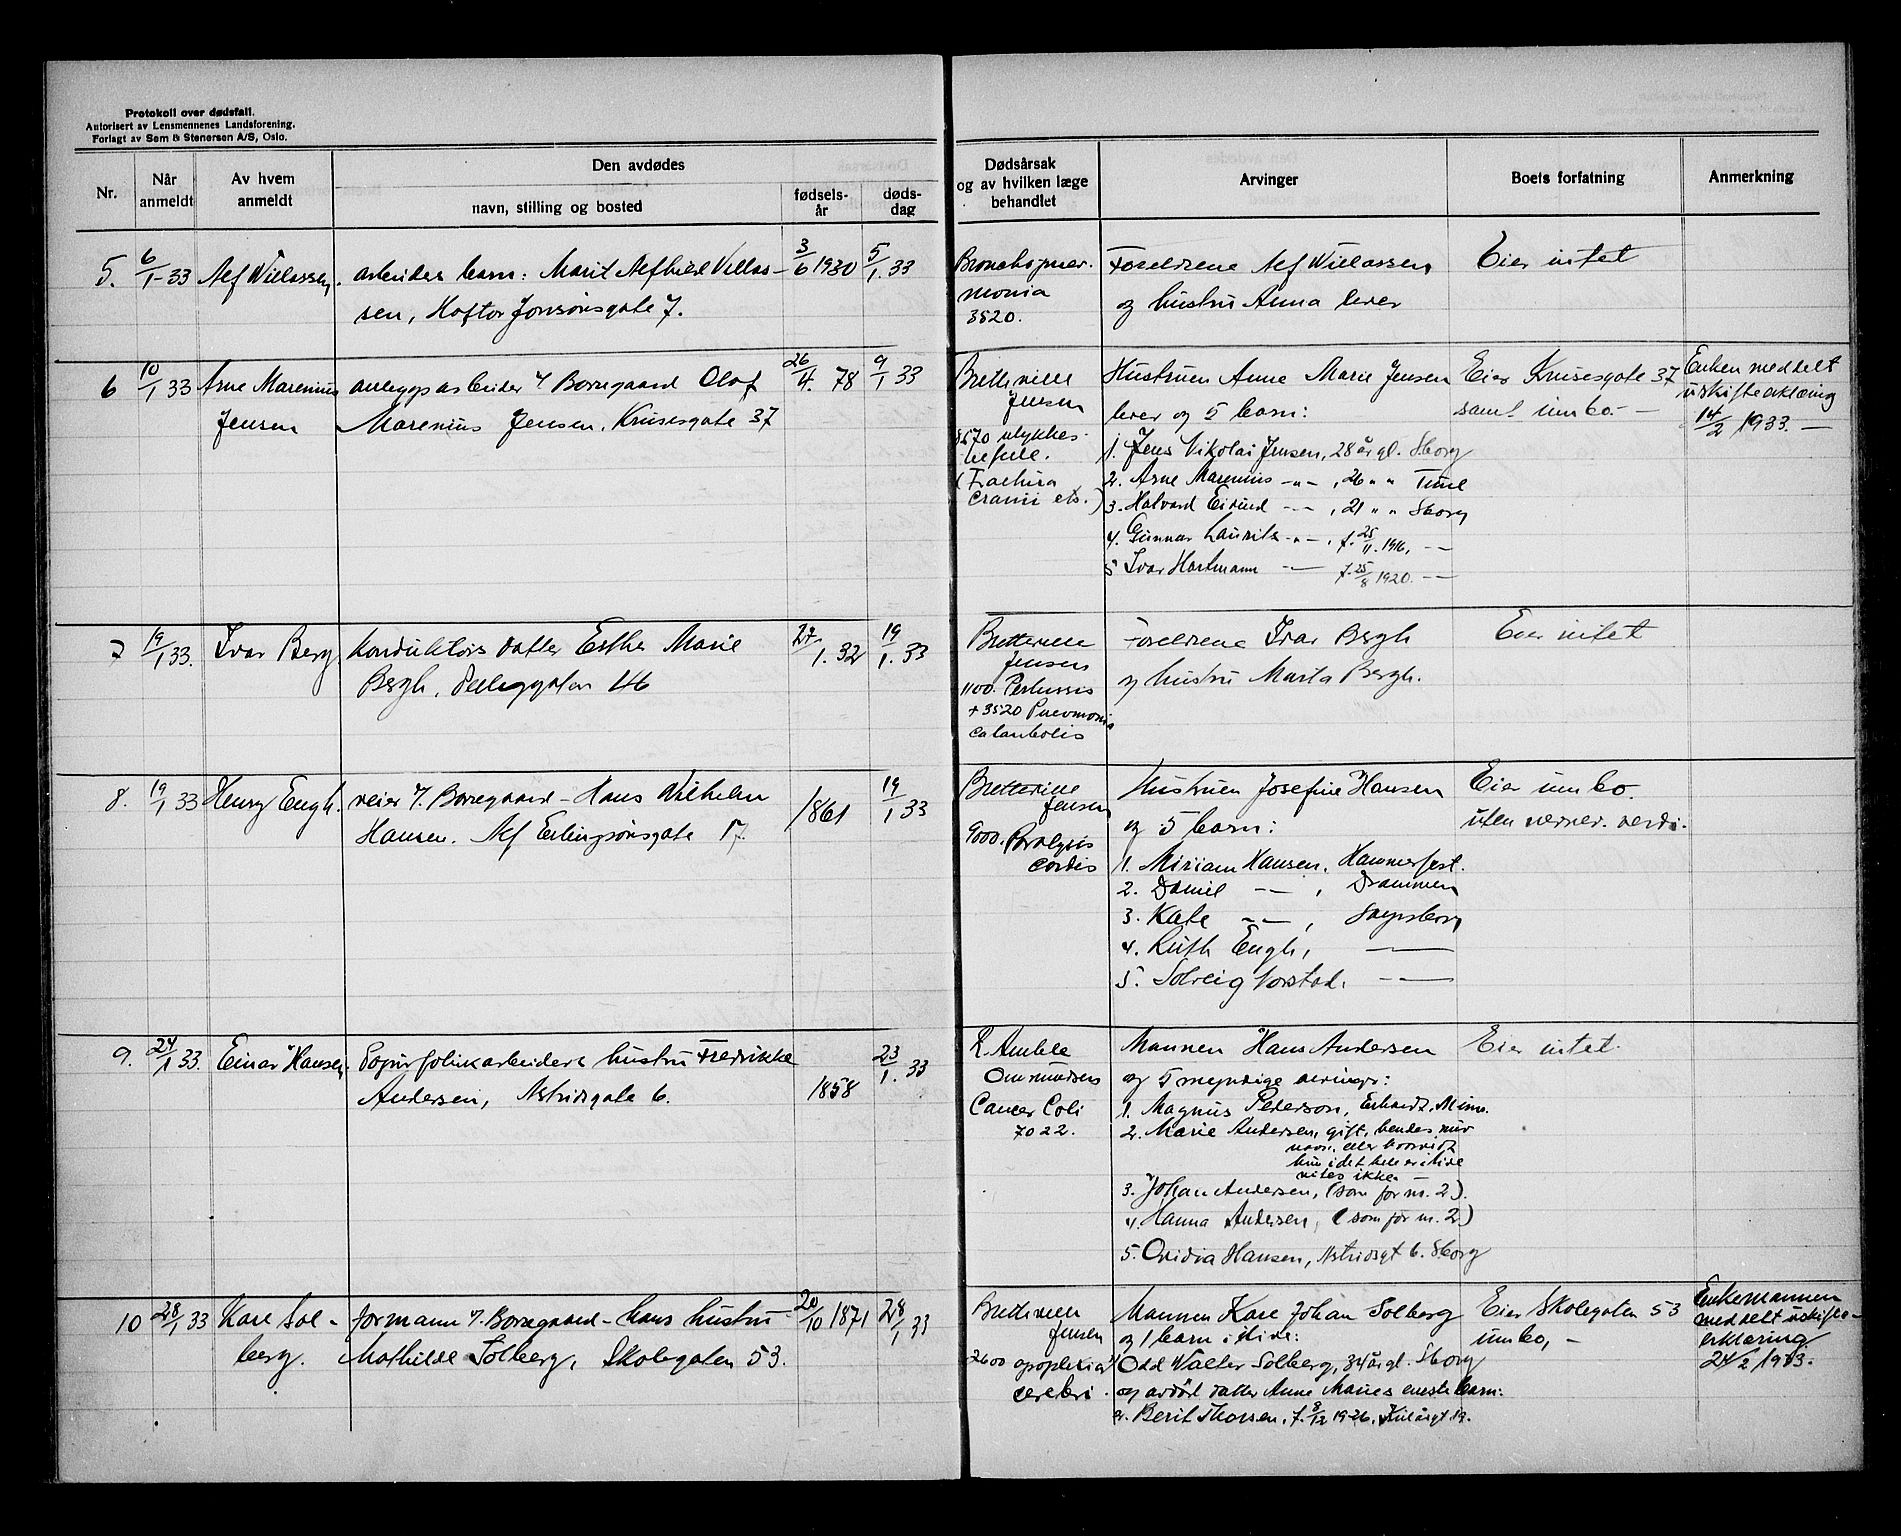 Protokoll over dødsfall.
Autorisert av Lensmennenes Landsforening.
Forlagt av Sem & Stenersen A/S, Oslo.
Nr.
Når anmeldt
Av hvem anmeldt
Den avdødes
navn, stilling og bosted
fødsels-år
døds-dag
Dødsårsak og av hvilken læge behandlet
Arvinger
Boets forfatning
Anmerkning
5. 6/1-33 Alf Willassen. arbeider barn: Marit Alfhild Villas- 3/6 1930 5/1.33
sen, Haftor Jonsønsgate 7.
Bronchopneu-
monia
3520.
Foreldrene Alf Willassen
og hustru Anna lever
Eier intet
6 10/1 33 Arne Marenius anleggsarbeider v/ Borregaard Olaf 26/4. 78 9/1 33
Jensen Marenius Jensen, Krusesgate 37
Bretteville
Jensen
ulykkes-
(Fractura
cranii etc.)
Hustruen Anne Marie Jensen
lever og 5 barn:
1. Jens Nikolai Jensen, 28 år gl. Sborg
2. Arne Marenius -"- , 26 " " Tune
3. Halvard Eivind -"- , 21 " " Sborg
4. Gunnar Lauritz -"- , f. 25/11. 1916, -"-
5 Ivar Hartmann -"- f. 25/8 1920. -"-
Eier Krusesgate 37
samt innbo. -
Enken meddelt
uskifteerklæring
14/2 1933. -
7 19/1 33. Ivar Berg Konduktørs datter Esther Marie 27/1. 32 19/1. 33
Bergh, 46
Bretteville
Jensen
1100. Pertussis
+ 3520 Pneumonia
catarrhalis
Foreldrene Ivar Bergh
og hustru Marta Bergh.
Eier intet
8. 19/1 33 Henry Engh. veier v/ Borregaard - Hans Wilhelm 1861 19/1 33
Hansen. Alf Erlingsønsgate 17.
Bretteville
Jensen
9000. Paralysis
cordis
Hustruen Josefine Hansen
og 5 barn:
1. Miriam Hansen, Hammerfest.
2. Daniel -"- , Drammen
3. Kate -"- , Sarpsborg
4. Ruth Engh, -"-
5. Solveig Norstad. -"-
Eier innbo.
uten nevnev. verdi.
9. 24/1 33. Einar Hansen. Papirfabrikarbeiders hustru Fredrikke 1858 23/1. 33
Andersen, Astridsgate 6.
Cancer Coli
7022.
Mannen Hans Andersen
og 5 myndige arvinger:
1. Magnus Pederson, Minn.
2. Marie Andersen, gift, hendes nuv.
navn eller hvorvidt
hun i det hele er i live
vites ikke.
3. Johan Andersen, (som for nr. 2).
4. Hanna Andersen, (som for nr. 2)
5. Ovidia Hansen, Astridsgt 6. Sborg
Eier intet.
10 28/1 33 Kare Sol- formann v/ Borregaard - hans hustru 20/10 1871 28/1 33
berg. Mathilde Solberg, Skolegaten 53.
Bretteville
Jensen
2600 apoplexia
cerebri
Mannen Kare Johan Solberg
og 1 barn i live:
1 Odd Walter Solberg, 34 år gl. Sborg
og avdød datter Anne Maries eneste barn:
a. Berit Thorsen, f. 8/12 1926,
Eier Skolegaten 53
innbo, -
Enkemannen
meddelt uskifte-
erklæring
24/2 1933.